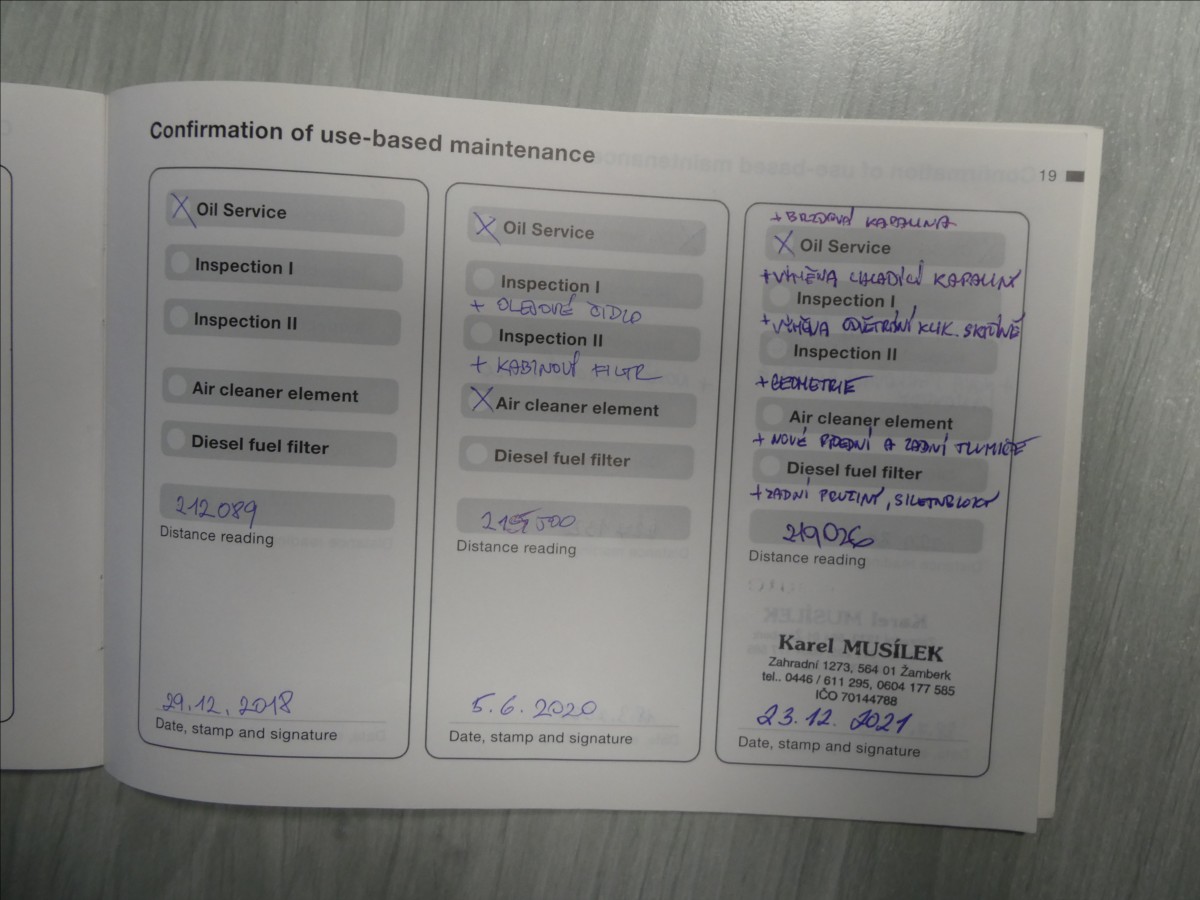 Confirmation of use-based maintenance
19
X Oil Service
Inspection I
Inspection II
Air cleaner element
Diesel fuel filter
212089
Distance reading
29.12.2018
Date, stamp and signature
X Oil Service
Inspection I
+ OLEJOVÉ ČIDLO
Inspection II
+ KABINOVÝ FILTR
X Air cleaner element
Diesel fuel filter
Distance reading
5.6.2020
Date, stamp and signature
+ BRZDOVÁ KAPALINA
X Oil Service
+ VÝMĚNA CHLADÍCÍ KAPALINY
Inspection I
+ VÝMĚNA ODVĚTRÁNÍ KLIK. SKŘÍNĚ
Inspection II
+ GEOMETRIE
Air cleaner element
+ NOVÉ PŘEDNÍ A ZADNÍ TLUMIČE
Diesel fuel filter
+ ZADNÍ PRUŽINY, SILENTBLOKY
219026
Distance reading
Karel MUSÍLEK
Zahradní 1273, 564 01 Žamberk
tel.. 0446 / 611 295, 0604 177 585
IČO 70144788
23.12.2021
Date, stamp and signature